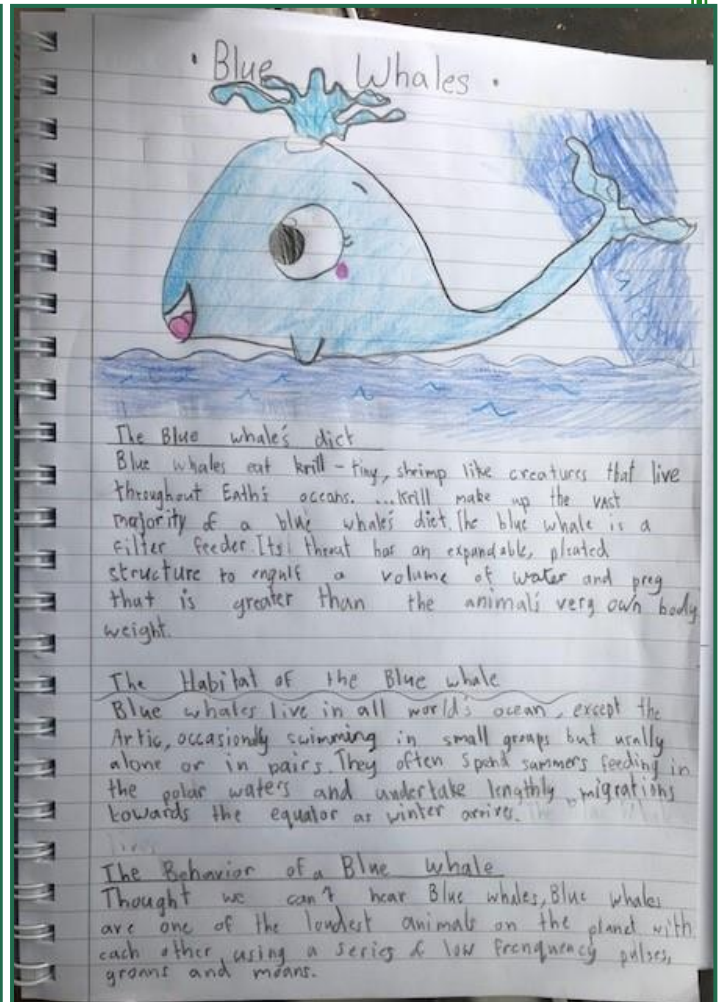 · Blue Whales ·
The Blue whale's diet
Blue whales eat krill - tiny, shrimp like creatures that live
throughout Eath's oceans. ...krill make up the vast
majority of a blue whale's diet. The blue whale is a
filter feeder. Its throat has an expandable, pleated
structure to engulf a volume of water and prey
that is greater than the animal's very own body
weight.
The Habitat of the Blue whale
Blue whales live in all world's ocean, except the
Artic, occasionly swimming in small groups but usally
alone or in pairs. They often spend summers feeding in
the polar waters and undertake lengthly migrations
towards the equator as winter arrives.
The Behavior of a Blue Whale
Thought we can't hear Blue whales, Blue whales
are one of the loudest animals on the planet with
each other, using a series of low frenquency pulses,
groans and moans.